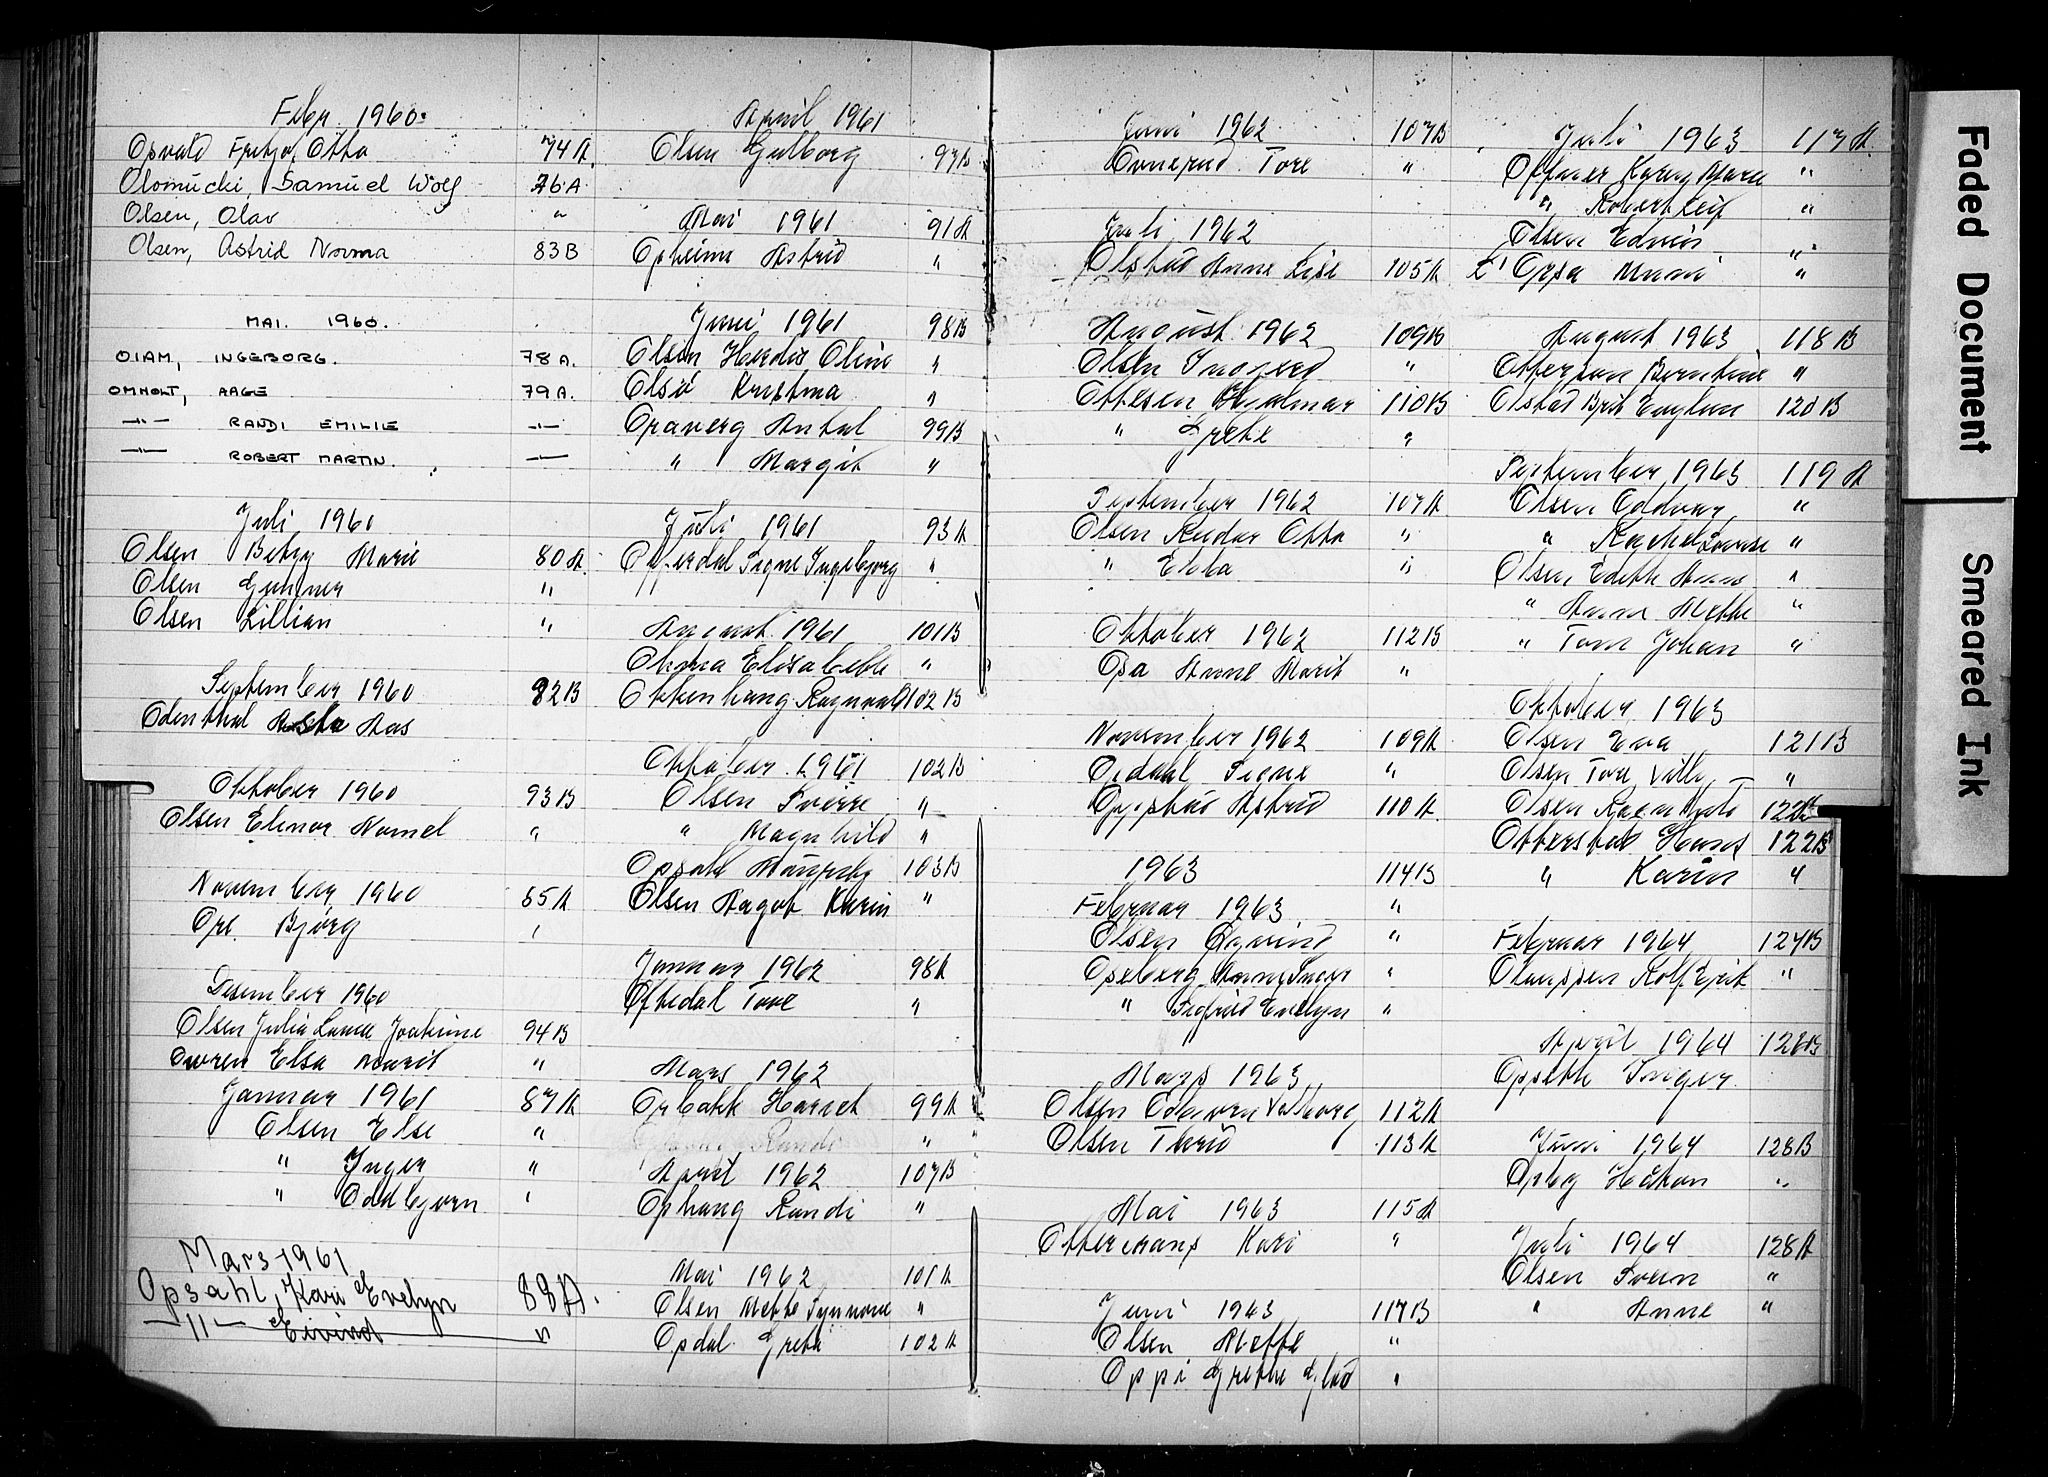 Febr. 1960.
Opvald Fritjof Otto 74A.
Olomucki, Samuel Wolf 76A
Olsen, Olav "
Olsen, Astrid Norma 83B
MAI. 1960.
OIAM, INGEBORG. 78A.
OMHOLT, AAGE 79A.
—"— RANDI EMILIE —"—
—"— ROBERT MARTIN. —"—
Juli 1960
Olsen Betzy Marie 80A.
Olsen Gunnar "
Olsen Lillian "
September 1960 82B
Odenthal Aas
Oktober 1960 93B
Olsen Elinor Nomel "
November 1960 85A
Bjørg "
Desember 1960
Olsen Julia Laura Joakime 94B
Elsa Marit "
Januar 1961 87A
Olsen Else "
" Inger "
" Oddbjørn "
Mars 1961
Opsahl, Kari Evelyn 88A.
—"— Eivind "
April 1961
Olsen Gulborg 97B
Mai 1961 91A
Opheim Astrid "
Juni 1961 98B
Olsen Herdis Oline "
Olsø Kristina "
Opaverg Antal 99B
" Margit "
Juli 1961 93A
Opperdal Signe Ingebjørg "
August 1961 101B
Elisabeth "
Okkenhaug Ragnvald 102B
Oktober 1961 102B
Olsen Sverre "
" Magnhild "
Opsahl 103B
Olsen Aagot Karin "
Januar 1962 98A
Oftedal Tove "
Mars 1962
Orbakk Harriet 99A
Randi "
April 1962 107B
Ophaug Randi "
Mai 1962 101A
Olsen Mette Synnøve "
Opdal Greta 102A
Juni 1962 107B
Tore "
Juli 1962
Olstad Anne Lise 105A
August 1962 109B
Olsen Ingjerd "
Ottesen Hjalmar 110B
" Grete "
September 1962 107A
Olsen Reidar Otto "
" Ebba "
Oktober 1962 112B
Opa Anne Marit "
November 1962 109A
Opdahl Signe "
Oppstad Astrid 110A
1963 114B
Februar 1963 "
Olsen Øyvind "
Opeberg Anny Inger "
" Sigfrid Evelyn "
Mars 1963
Olsen Valborg 112A
Olsen Thrid 113A
Mai 1963 115A
Kari "
Juni 1963 117B
Olsen Mette "
Oppi Grethe Glad "
Juli 1963 117A.
Karen Marie "
" Robert Leif "
Olsen Edvin "
Oppa "
August 1963 118B
Ottersen Berntine "
Olstad Brit Englun 120B
September 1963 119A
Olsen Oddvar "
" Rachel Lovise "
Olsen Edith Ann "
" Anne Mette "
" Tom Johan "
Oktober 1963
Olsen Eva 121B
Olsen Tore Villy "
Olsen 122B
Otterstad Hans 122B
" Karin "
Februar 1964 124B
Olaussen Rolf Gerit "
April 1964 126B
Oppeth Inger
Juni 1964 128B
Opby Håkon "
Juli 1964 128A
Olsen Svein "
" Anne "
Faded Document
Smeared Ink